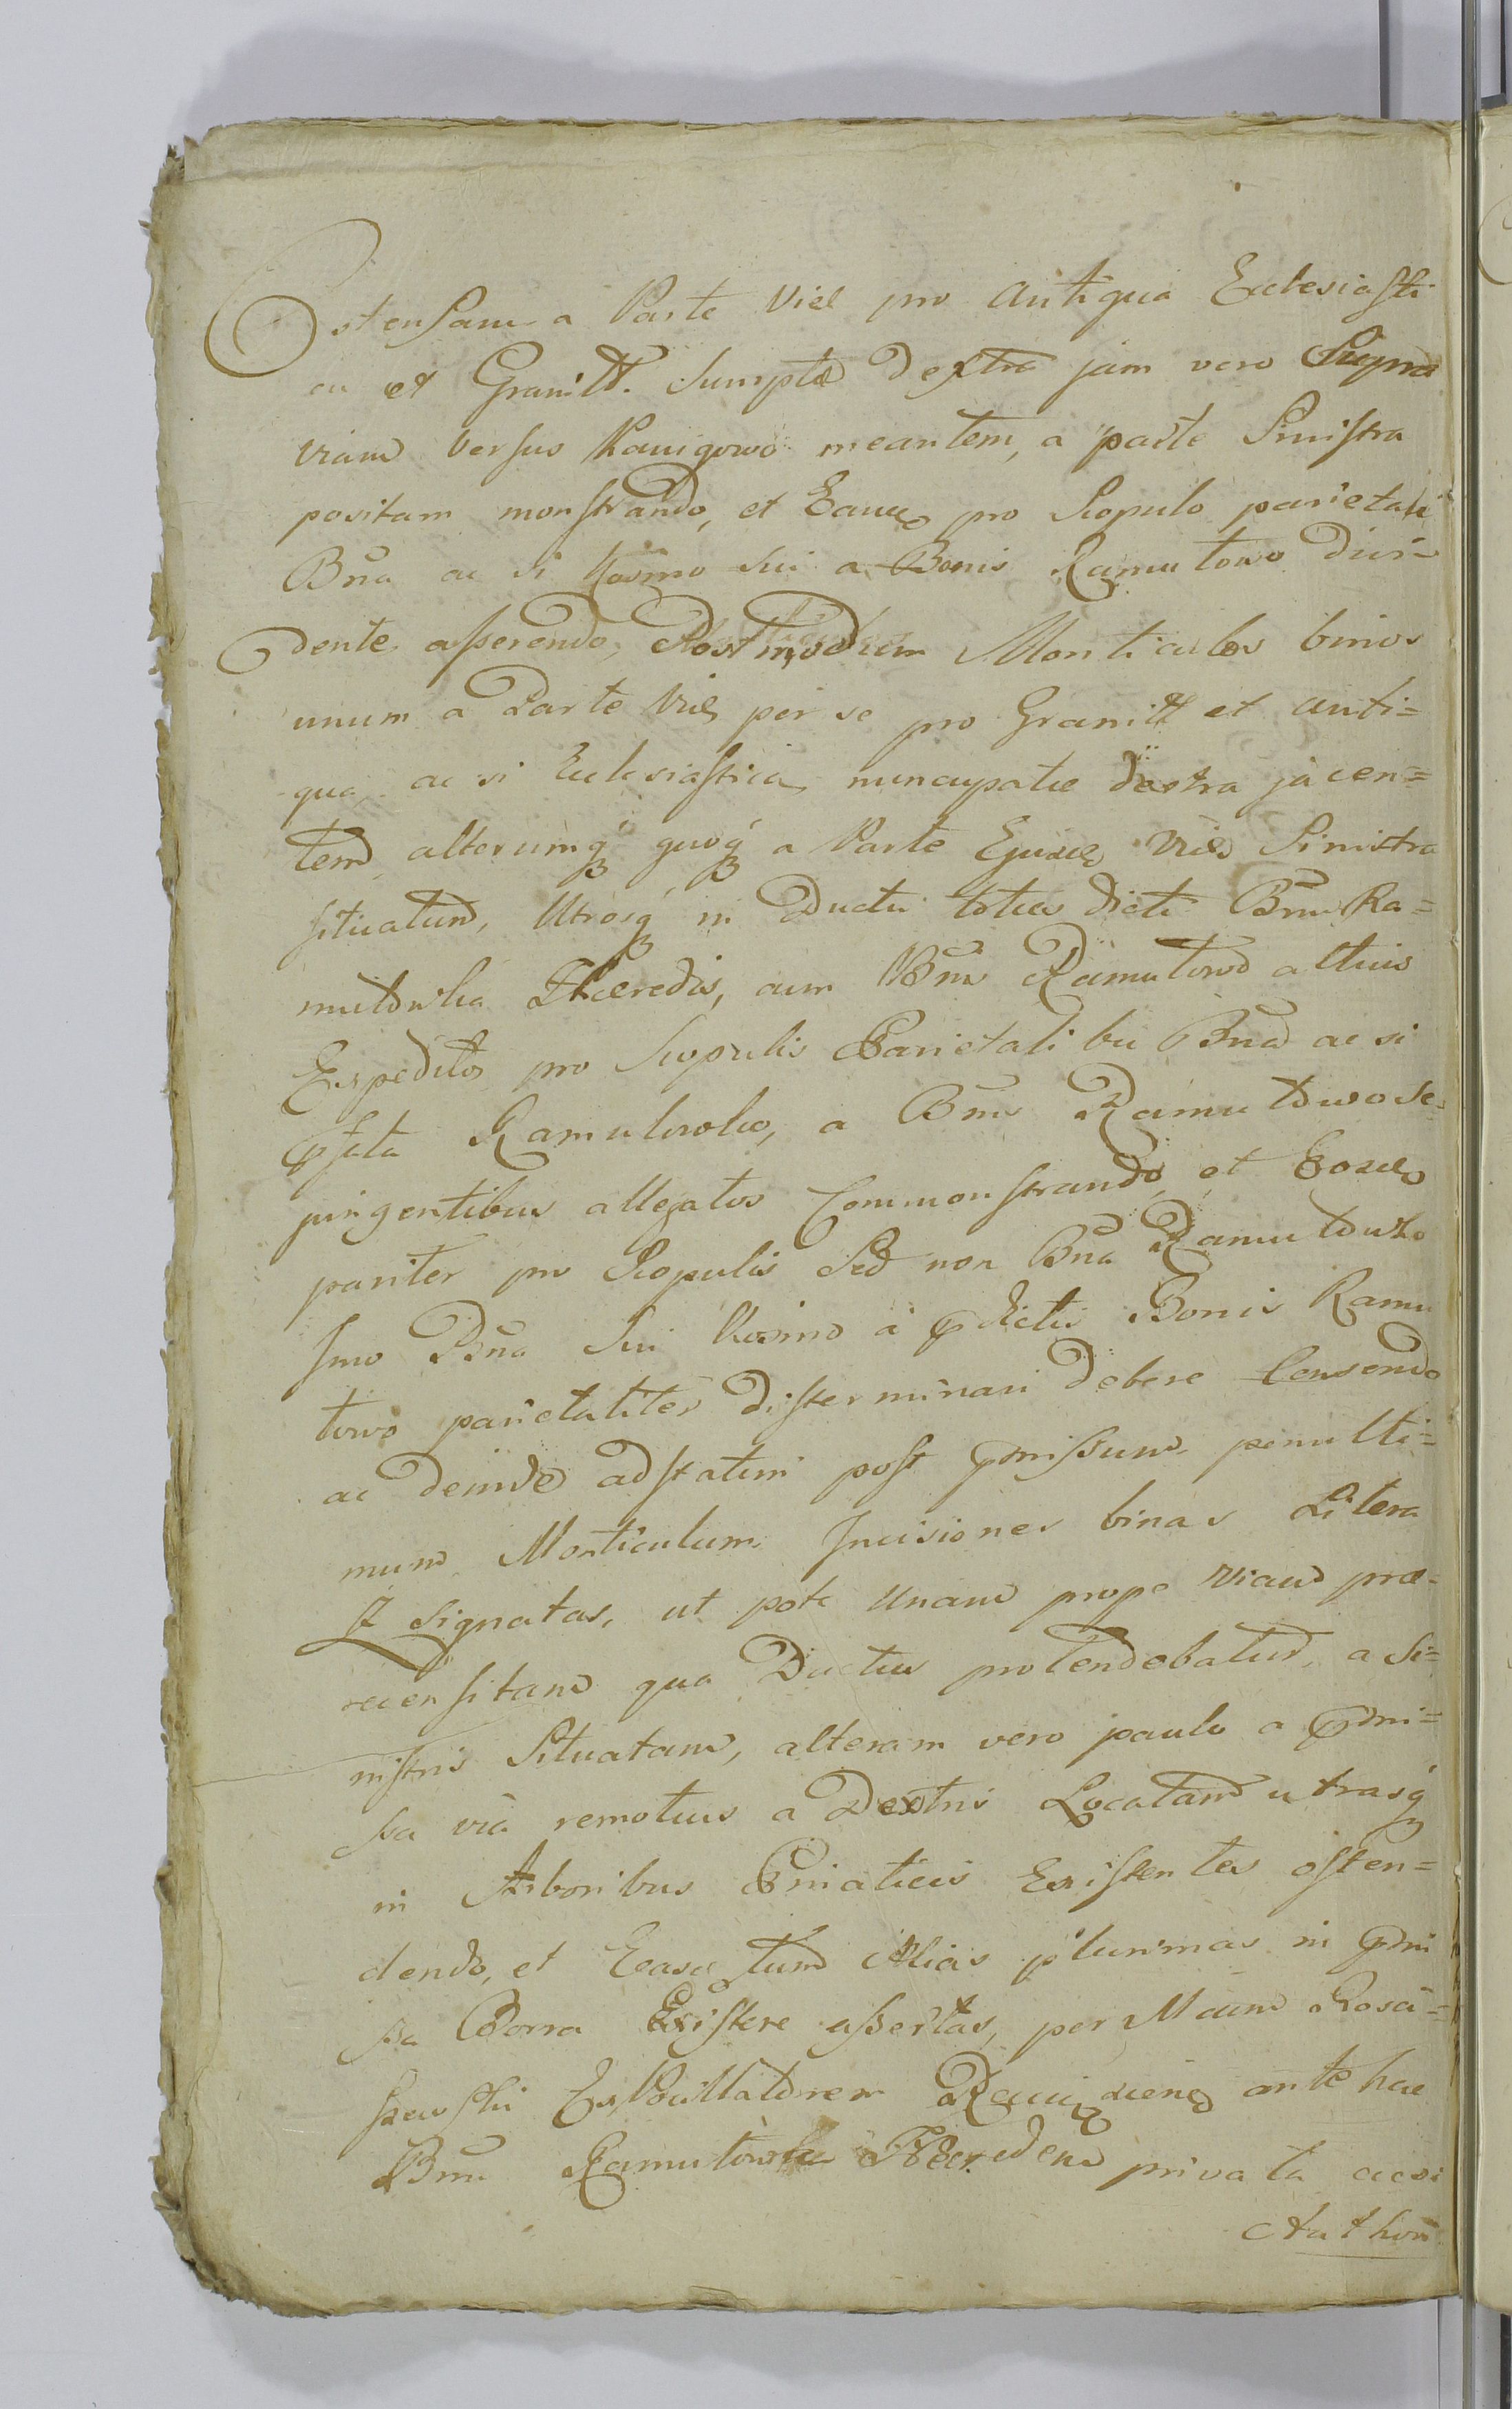 Ostensam a Parte Viæ pro Antiqua Ecclesiasti
ca et Granitt. Sumptæ Dextra jam vero
viam versus Kanigowo meantem, a parte Sinistra
positam monstrando, et Eam pro Scopulo parietali
Bña ac si Kosmo sui a Bonis Ramutowo divi=
dente asserendo, Postmodum Monticulos binos
unum a Parte Viæ per se pro Granitt et anti=
qua, ac si Ecclesiastica nuncupatæ dextra jacen=
tem alterumq́ꝫ quoq́ꝫ a Parte Ejusd Viæ Sinistra
situatum, Utrosq́ꝫ in Ductu toties dicti Bñu Ra=
mutowko Hæredis, cum Bñu Ramutowo altius
Expeditos pro Scopulis Parietalibu Bña ac si
Ramutowko, a Bñu Ramutowo se=
jungentibus allegatos Commonstrando, et Eosd
pariter pro Scopulis Sed non Bña Ramutowko
Imo Bña Sui Kosmo à pdictis Bonis Ramu
towo parietaliter disterminari debere Censendo
ac deinde adstatim post pmissum penulti=
mum Monticulum Incisiones binas Litera
signatas, ut pote Unam prope Viam præ=
recensitam qua Ductus protendebatur, a Si=
nistris Situatam, alteram vero paulo a pmi=
ssa via remotius a Dextris Locatam utrasq́ꝫ
in Arboribus Pniaticis Existentes osten=
dendo, et Easd tum Alias plurimas in pmi
ssa Borra Existere assertas, per Mcum Rosci=
szewski Exkonittatorem ante hac
Bñu Ramutowko Hæredem privata acsi
Authori